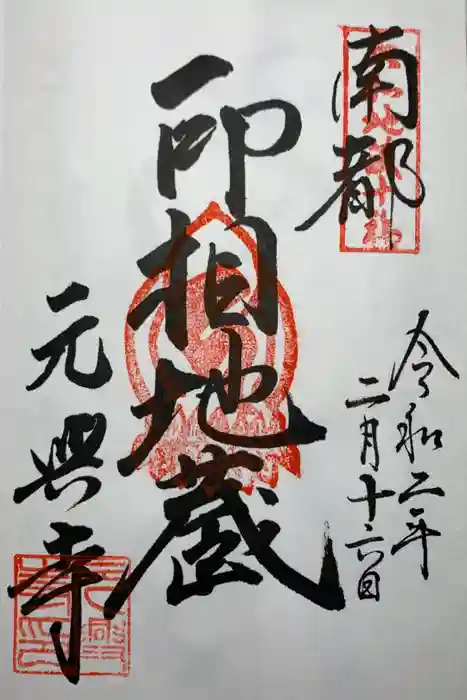 南都
令和二年
二月十六日
一印相地蔵
元興寺